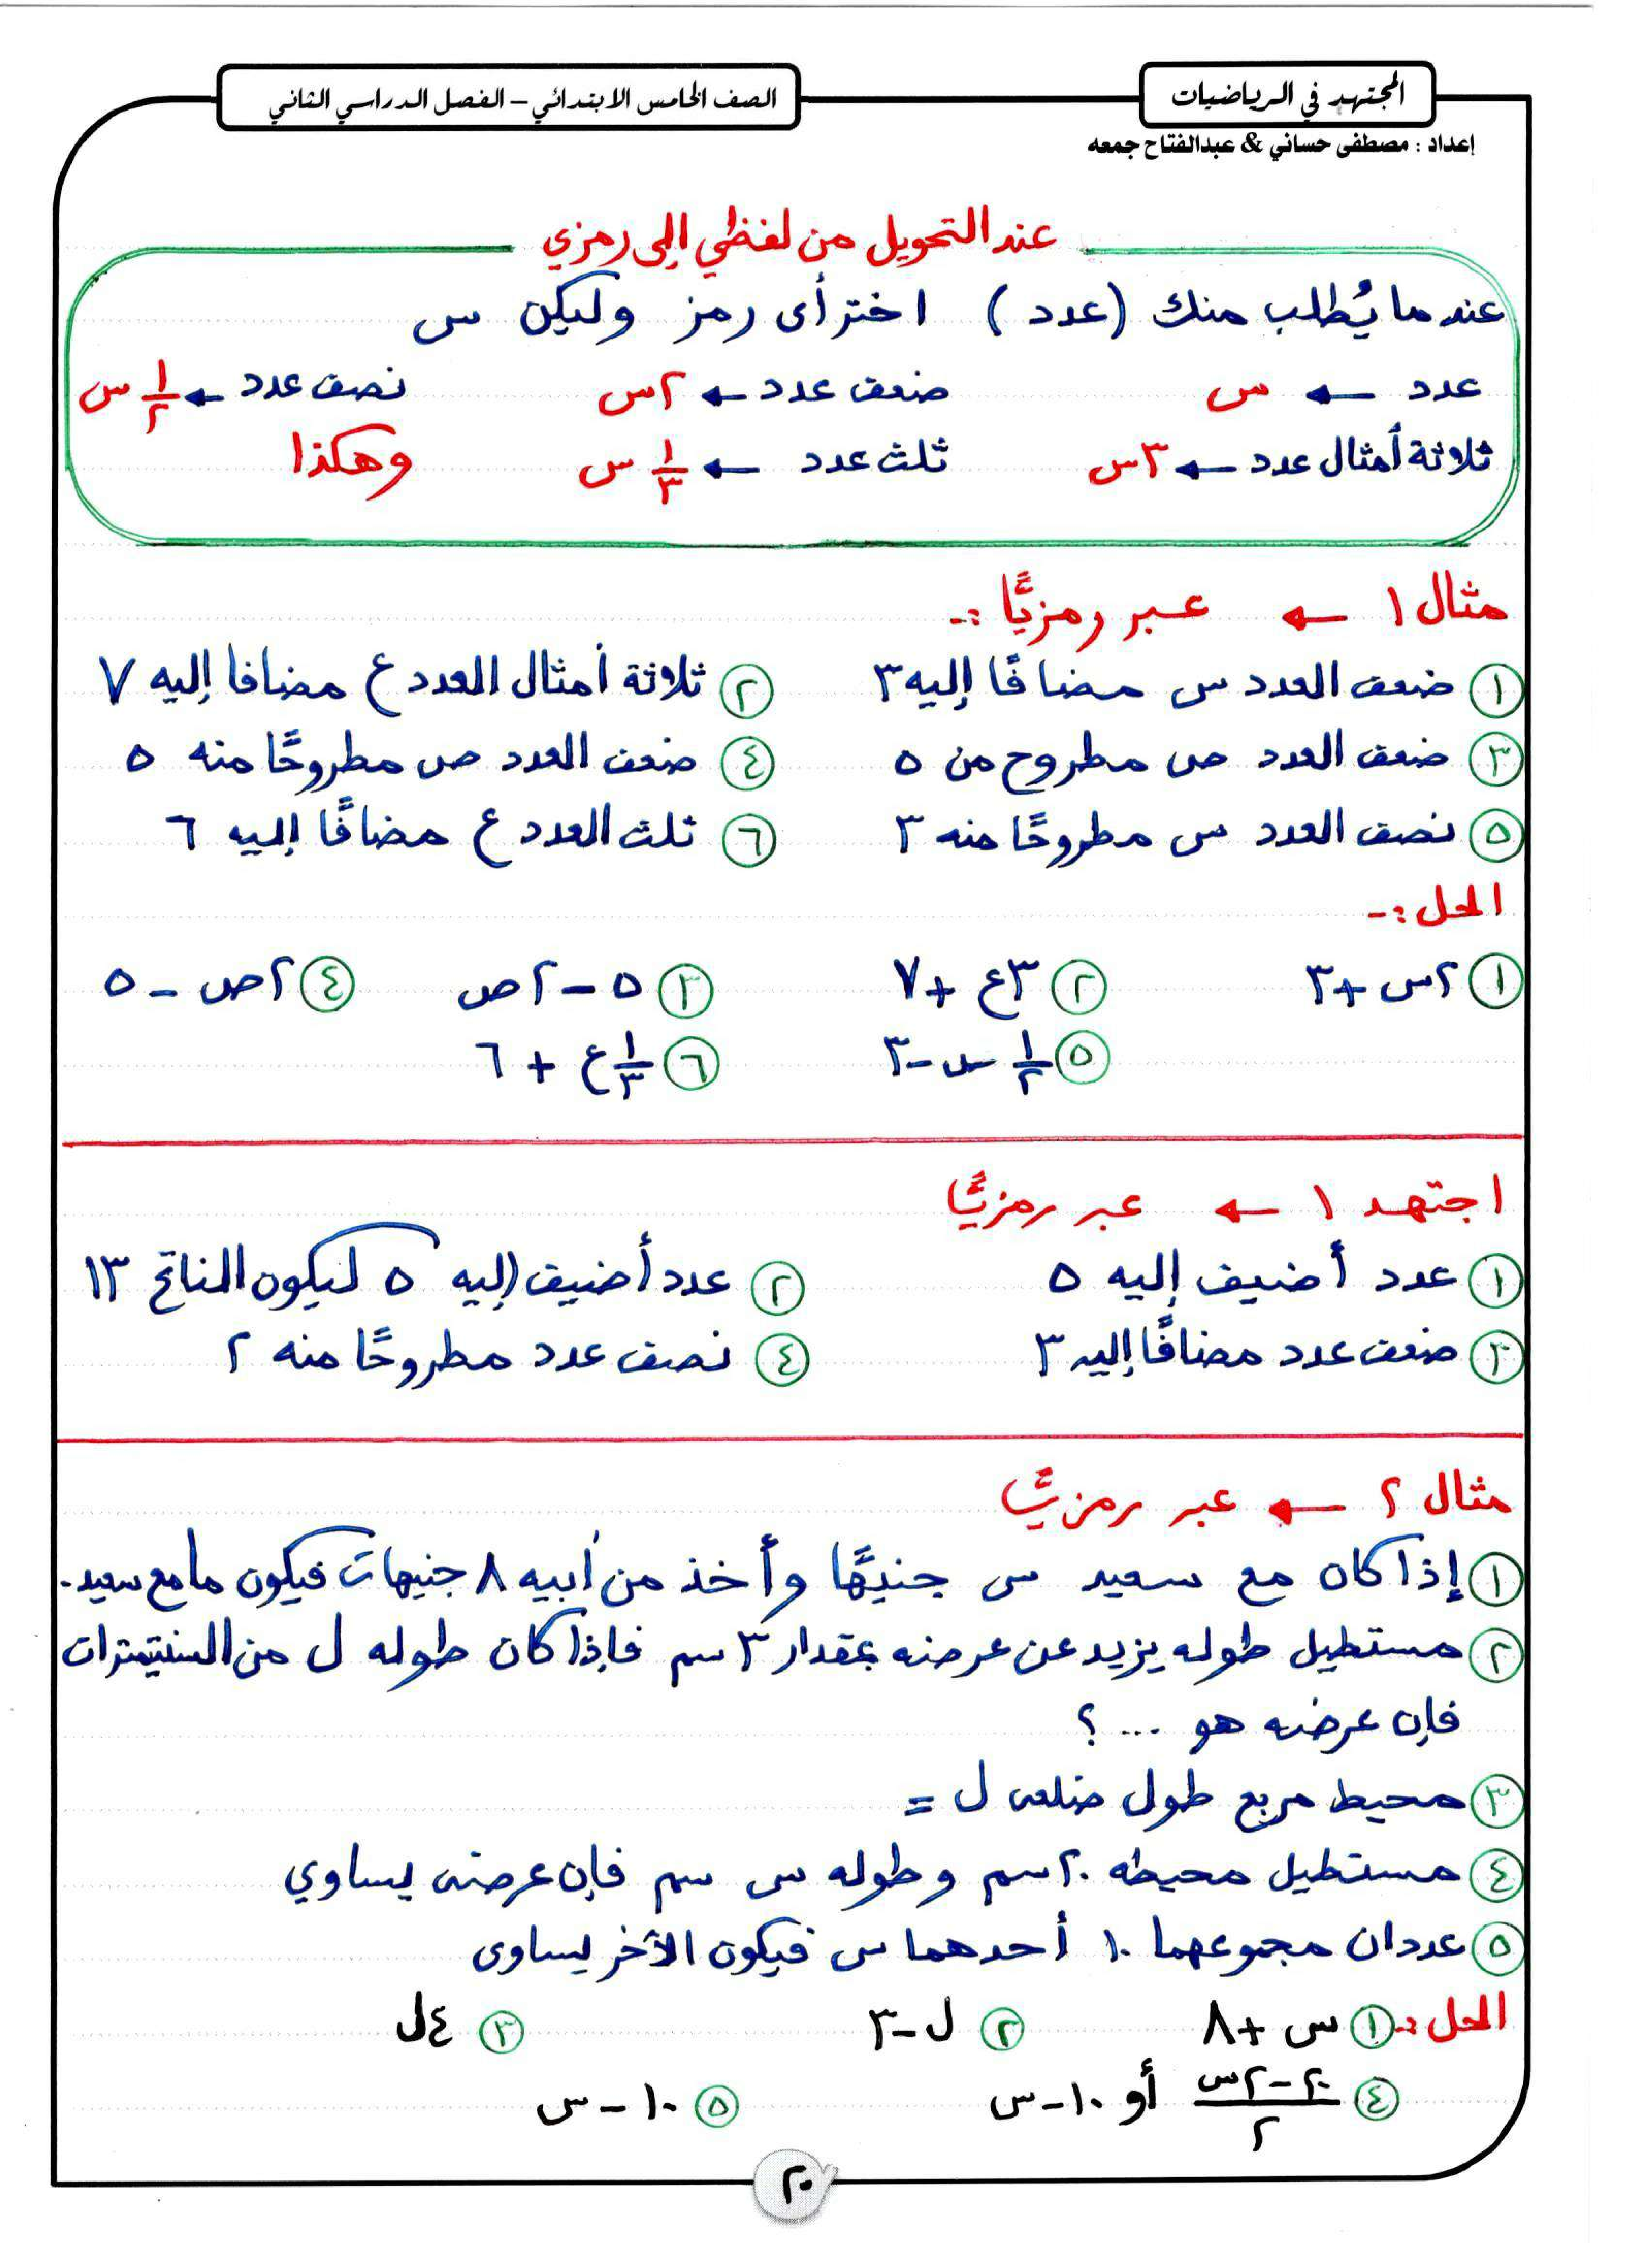 المجتهد في الرياضيات
الصف الخامس الابتدائي – الفصل الدراسي الثاني
إعداد : مصطفى حساني & عبدالفتاح جمعه
عند التحويل من لفظي إلى رمزي
عندما يُطلب منك (عدد) اختر أى رمز وليكن س
عدد ← س ضعف عدد ← ٢س نصف عدد ← ١/٢ س
ثلاثة أمثال عدد ← ٣س ثلث عدد ← ١/٣ س وهكذا
مثال ١ ← عبر رمزيًّا :-
١ ضعف العدد س مضافًا إليه ٣ ٢ ثلاثة أمثال العدد ع مضافا إليه ٧
٣ ضعف العدد ص مطروح من ٥ ٤ ضعف العدد ص مطروحًا منه ٥
٥ نصف العدد س مطروحًا منه ٣ ٦ ثلث العدد ع مضافًا إليه ٦
الحل :-
١ ٢س + ٣ ٢ ٣ع + ٧ ٣ ٥ – ٢ص ٤ ٢ص – ٥
٥ ١/٢ س – ٣ ٦ ١/٣ ع + ٦
اجتهد ١ ← عبر رمزيًّا
١ عدد أضيف إليه ٥ ٢ عدد أضيف إليه ٥ ليكون الناتج ١٣
٣ ضعف عدد مضافًا إليه ٣ ٤ نصف عدد مطروحًا منه ٢
مثال ٢ ← عبر رمزيًّا
١ إذا كان مع سعيد س جنيهًا وأخذ من أبيه ٨ جنيهات فيكون ما مع سعيد.
٢ مستطيل طوله يزيد عن عرضه بمقدار ٣ سم فإذا كان طوله ل من السنتيمترات
فإن عرضه هو ... ؟
٣ محيط مربع طول ضلعه ل =
٤ مستطيل محيطه ٢٠ سم وطوله س سم فإن عرضه يساوي
٥ عددان مجموعهما ١٠ أحدهما س فيكون الآخر يساوى
الحل :- ١ س + ٨ ٢ ل – ٣ ٣ ٤ل
٤ ٢٠ – ٢س / ٢ أو ١٠ – س ٥ ١٠ – س
٢٠